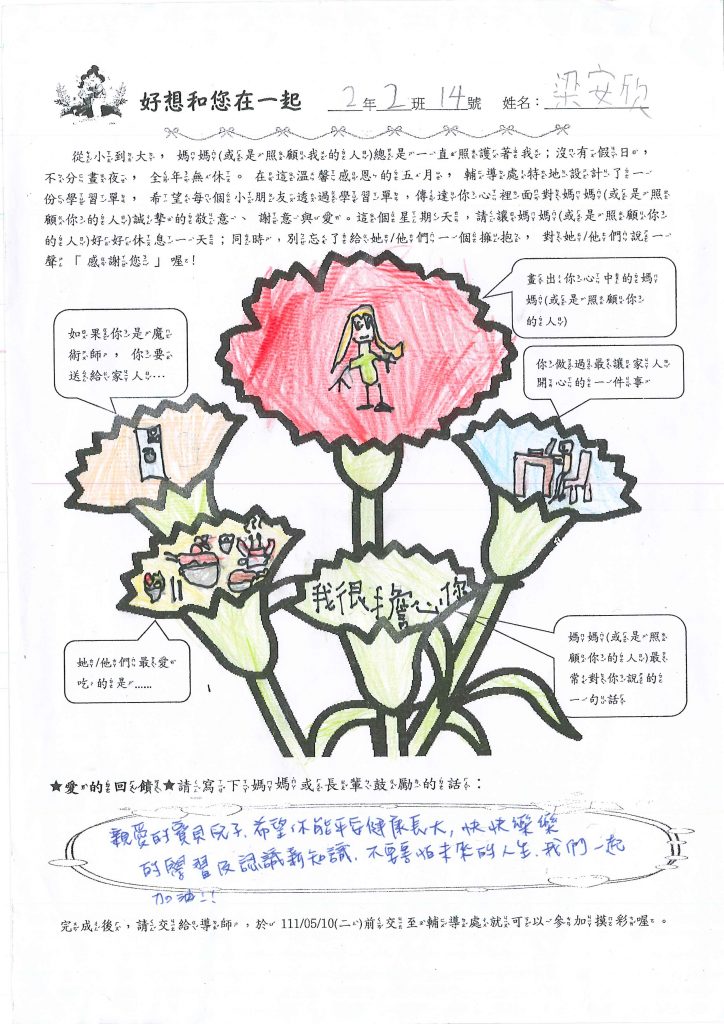 好想和您在一起 2年2班14號 姓名：梁安欣
從小到大，媽媽(或是照顧我的人)總是一直照護著我；沒有假日，
不分晝夜，全年無休。在這溫馨感恩的五月，輔導處特地設計了一
份學習單，希望每個小朋友透過學習單，傳達你心裡面對媽媽(或是照
顧你的人)誠摯的敬意、謝意與愛。這個星期天，請讓媽媽(或是照顧你
的人)好好休息一天；同時，別忘了給她/他們一個擁抱，對她/他們說一
聲「感謝您」喔！
畫出你心中的媽
媽(或是照顧你
的人)
如果你是魔
術師，你要
送給家人…
你做過最讓家人
開心的一件事
我很擔心你
她/他們最愛
吃的是……
媽媽(或是照
顧你的人)最
常對你說的
一句話
★愛的回饋★請寫下媽媽或長輩鼓勵的話：
親愛的寶貝兒子，希望你能平安健康長大，快快樂樂
的學習及認識新知識，不要害怕未來的人生，我們一起
加油!!
完成後，請交給導師，於 111/05/10(二)前交至輔導處就可以參加摸彩喔。